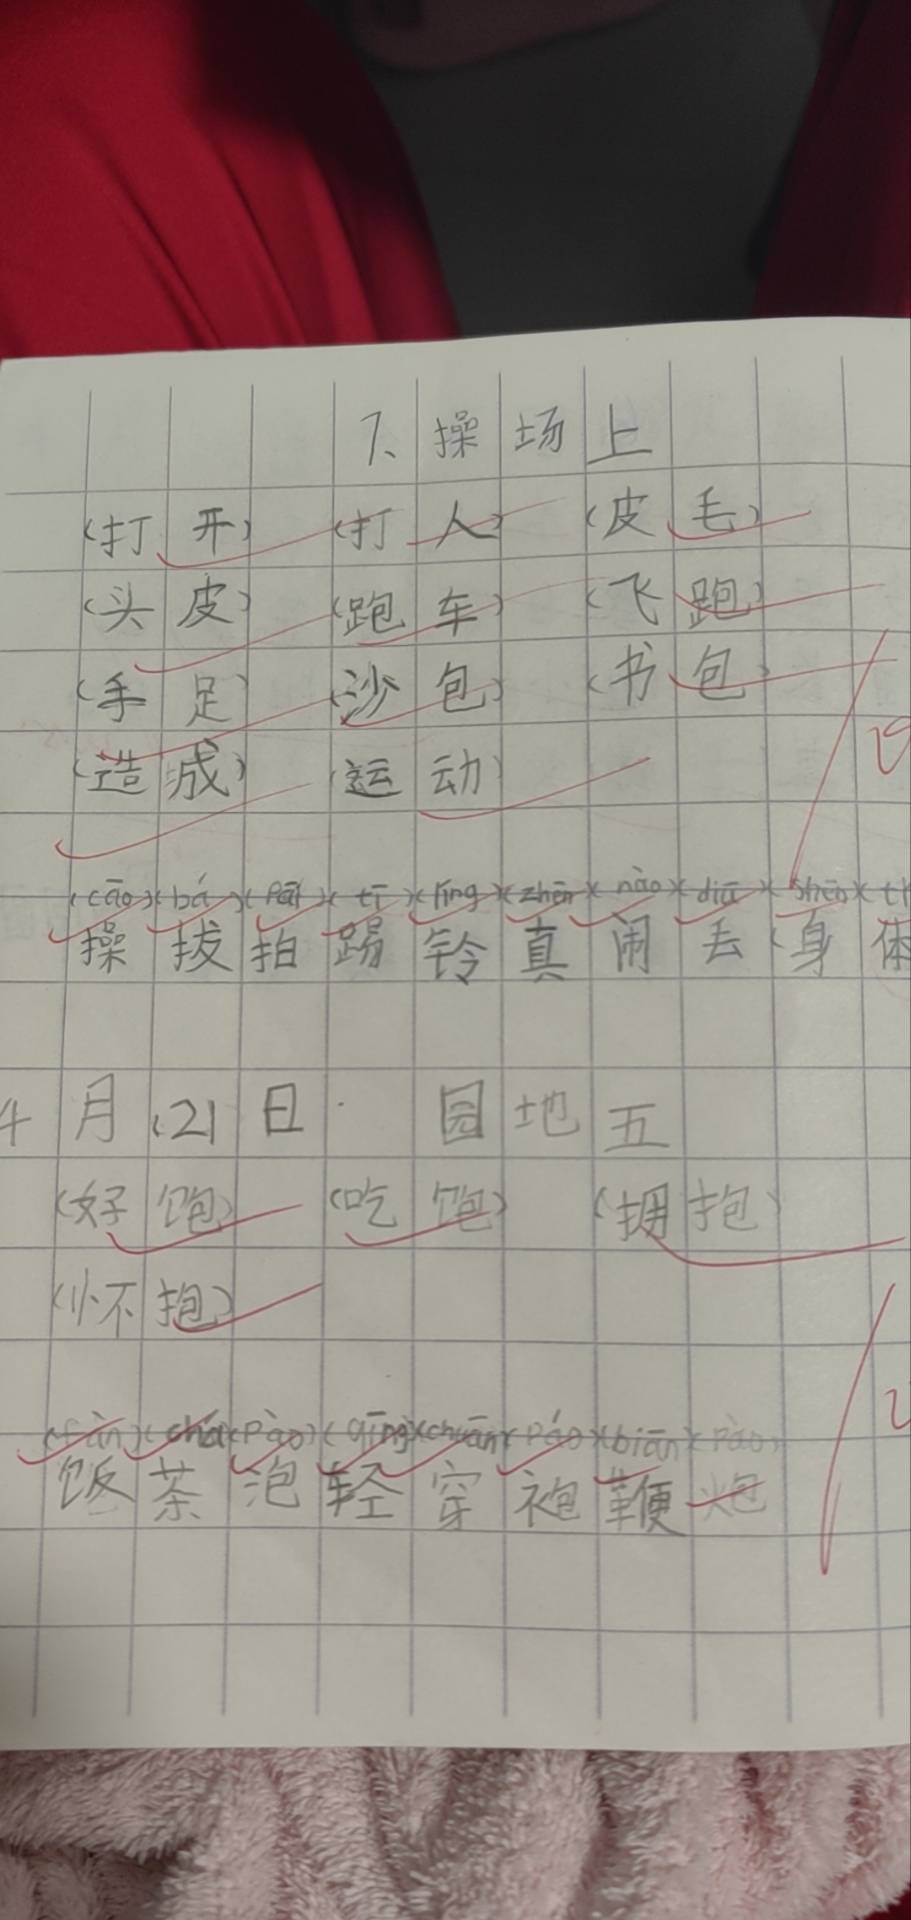 7、操场上
(打开) (打人) (皮毛)
(头皮) (跑车) (飞跑)
(手足) (沙包) (书包)
(造成) (运动)
(cāo)(bá)(Pāi)(tī)(líng)(zhēn)(nào)(diū)(shēn
操拔拍踢铃真闹丢身体
4月21日 园地五
(好饱) (吃饱) (拥抱)
(怀抱)
(fàn)(chá)(Pào)(qīng)(chuān)(Páo)(biān)(Pào)
饭茶泡轻穿袍鞭炮